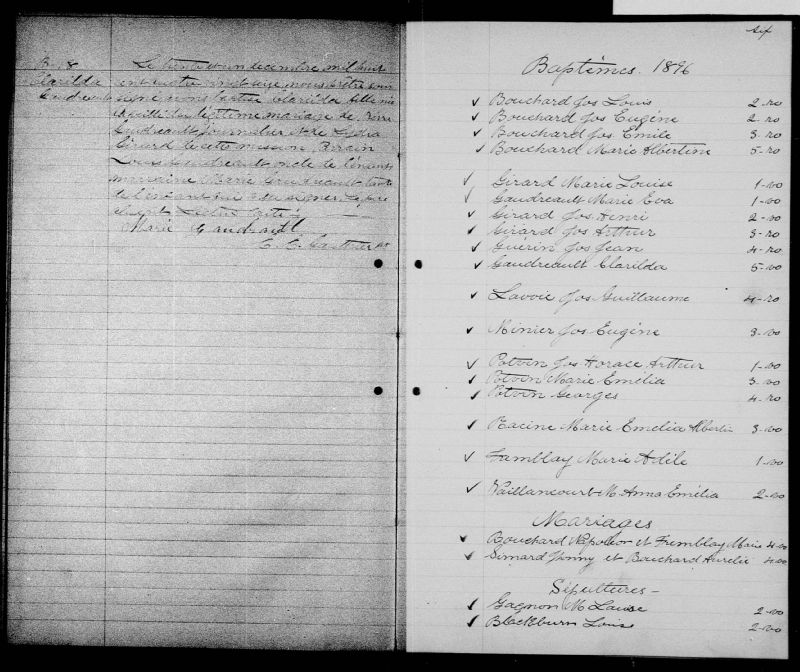 B. 8
Clarilda
Gaudreault
Le trente et un decembre mil huit
cent quatre vingt seize nous prêtre sous
signé avons baptisé Clarilda fille née
légitime mariage de
Gaudreault journalier et de Lydia
Girard de cette mission. Parrain
Louis Gaudreault oncle de l'enfant
marraine Marie Gaudreault tante
de l'enfant qui a su signer. Le père
absent. Lecture faite.
Marie Gaudreault
Baptêmes. 1896
✓ Bouchard Jos Louis 2-ro
✓ Bouchard Jos Eugène 2-ro
✓ Bouchard Jos Emile 3-ro
✓ Bouchard Marie Albertine 5-ro
✓ Girard Marie Louise 1-vo
✓ Gaudreault Marie Eva 1-vo
✓ Girard Jos Henri 2-vo
✓ Girard Jos Arthur 3-ro
✓ Guérin Jos Jean 4-ro
✓ Gaudreault Clarilda 5-vo
✓ Lavoie Jos Guillaume 4-ro
✓ Minier Jos Eugène 3-vo
✓ Potvin Jos Horace Arthur 1-vo
✓ Potvin Marie Emélia 3-vo
✓ Potvin Georges 4-ro
✓ Racine Marie Emélia Albertin 3-vo
✓ Tremblay Marie Adèle 1-vo
✓ Vaillancourt M. Anna Emélia 2-vo
Mariages
✓ Bouchard Napoléon et Tremblay Marie 4-vo
✓ Simard Jimmy et Bouchard Aurélie 4-vo
Sépultures-
✓ Gagnon M Louise 2-vo
✓ Blackburn Louis 2-vo